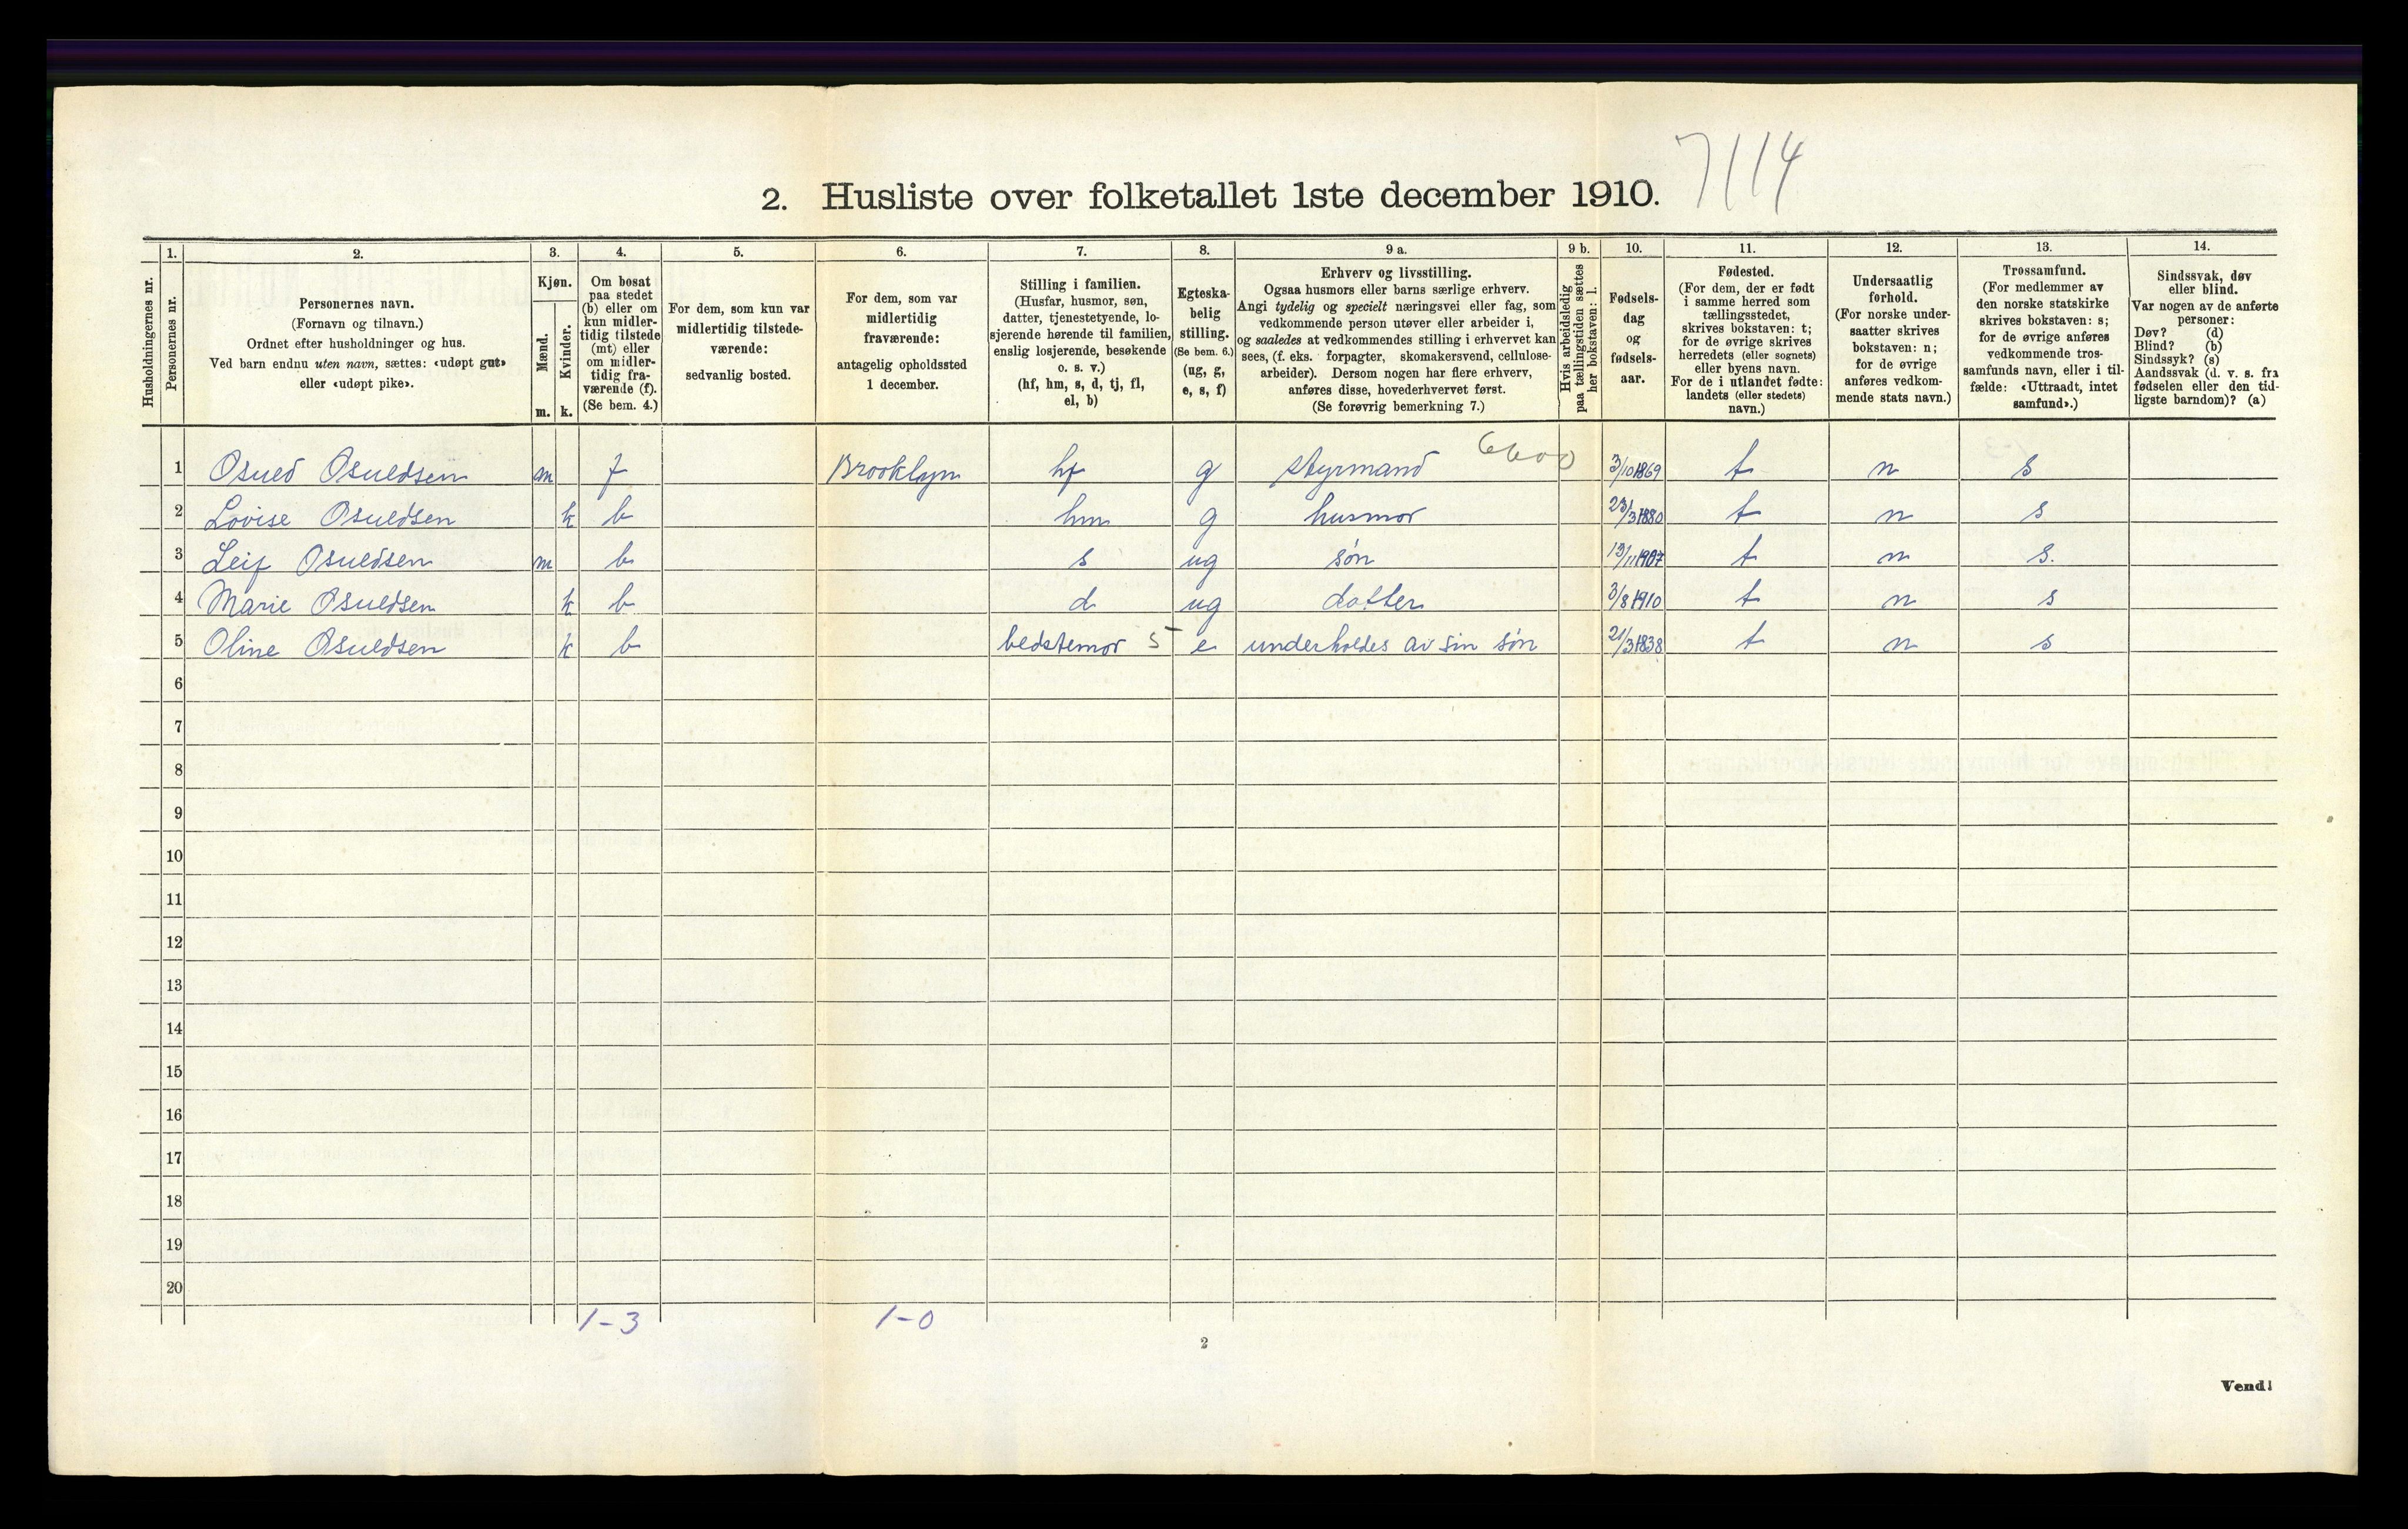 7114
2. Husliste over folketallet 1ste december 1910.
Husholdningernes nr.
1.
Personernes nr.
2.
Personernes navn.
(Fornavn og tilnavn.)
Ordnet efter husholdninger og hus.
Ved barn endnu uten navn, sættes: «udøpt gut»
eller «udøpt pike».
3.
Kjøn.
Mænd.
Kvinder.
m. k.
4.
Om bosat
paa stedet
(b) eller om
kun midler-
tidig tilstede
(mt) eller
om midler-
tidig fra-
værende (f).
(Se bem. 4.)
5.
For dem, som kun var
midlertidig tilstede-
værende:
sedvanlig bosted.
6.
For dem, som var
midlertidig
fraværende:
antagelig opholdssted
1 december.
7.
Stilling i familien.
(Husfar, husmor, søn,
datter, tjenestetyende, lo-
sjerende hørende til familien,
enslig losjerende, besøkende
o. s. v.)
(hf, hm, s, d, tj, fl,
el, b)
8.
Egteska-
belig
stilling.
(Se bem. 6.)
(ug, g,
e, s, f)
9 a.
Erhverv og livsstilling.
Ogsaa husmors eller barns særlige erhverv.
Angi tydelig og specielt næringsvei eller fag, som
vedkommende person utøver eller arbeider i,
og saaledes at vedkommendes stilling i erhvervet kan
sees, (f. eks. forpagter, skomakersvend, cellulose-
arbeider). Dersom nogen har flere erhverv,
anføres disse, hovederhvervet først.
(Se forøvrig bemerkning 7.)
9 b.
Hvis arbeidsledig
paa tællingstiden sættes
her bokstaven: l.
10.
Fødsels-
dag
og
fødsels-
aar.
11.
Fødested.
(For dem, der er født
i samme herred som
tællingsstedet,
skrives bokstaven: t;
for de øvrige skrives
herredets (eller sognets)
eller byens navn.
For de i utlandet fødte:
landets (eller stedets)
navn.)
12.
Undersaatlig
forhold.
(For norske under-
saatter skrives
bokstaven: n;
for de øvrige
anføres vedkom-
mende stats navn.)
13.
Trossamfund.
(For medlemmer av
den norske statskirke
skrives bokstaven: s;
for de øvrige anføres
vedkommende tros-
samfunds navn, eller i til-
fælde: «Uttraadt, intet
samfund».)
14.
Sindssvak, døv
eller blind.
Var nogen av de anførte
personer:
Døv? (d)
Blind? (b)
Sindssyk? (s)
Aandssvak (d. v. s. fra
fødselen eller den tid-
ligste barndom)? (a)
1 Osuld Osuldsen m f Brooklyn hf g styrmand 6600 3/10 1869 t n s
2 Lovise Osuldsen k b hm g husmor 23/3 1880 t n s
3 Leif Osuldsen m b s ug søn 13/11 1907 t n s.
4 Marie Osuldsen k b d ug datter 3/8 1910 t n s
5 Oline Osuldsen k b bedstemor 5 e underholdes av sin søn 21/3 1838 t n s
6
7
8
9
10
11
12
13
14
15
16
17
18
19
20
1-3 1-0
2
Vend!